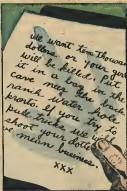 we want ten thousand
dollars or your gen
will be killed. put
it in a bag by the
cave near the
ranch water hole
pronto. If you try to
pull tricks we will
shoot your
we mean business.
xxx